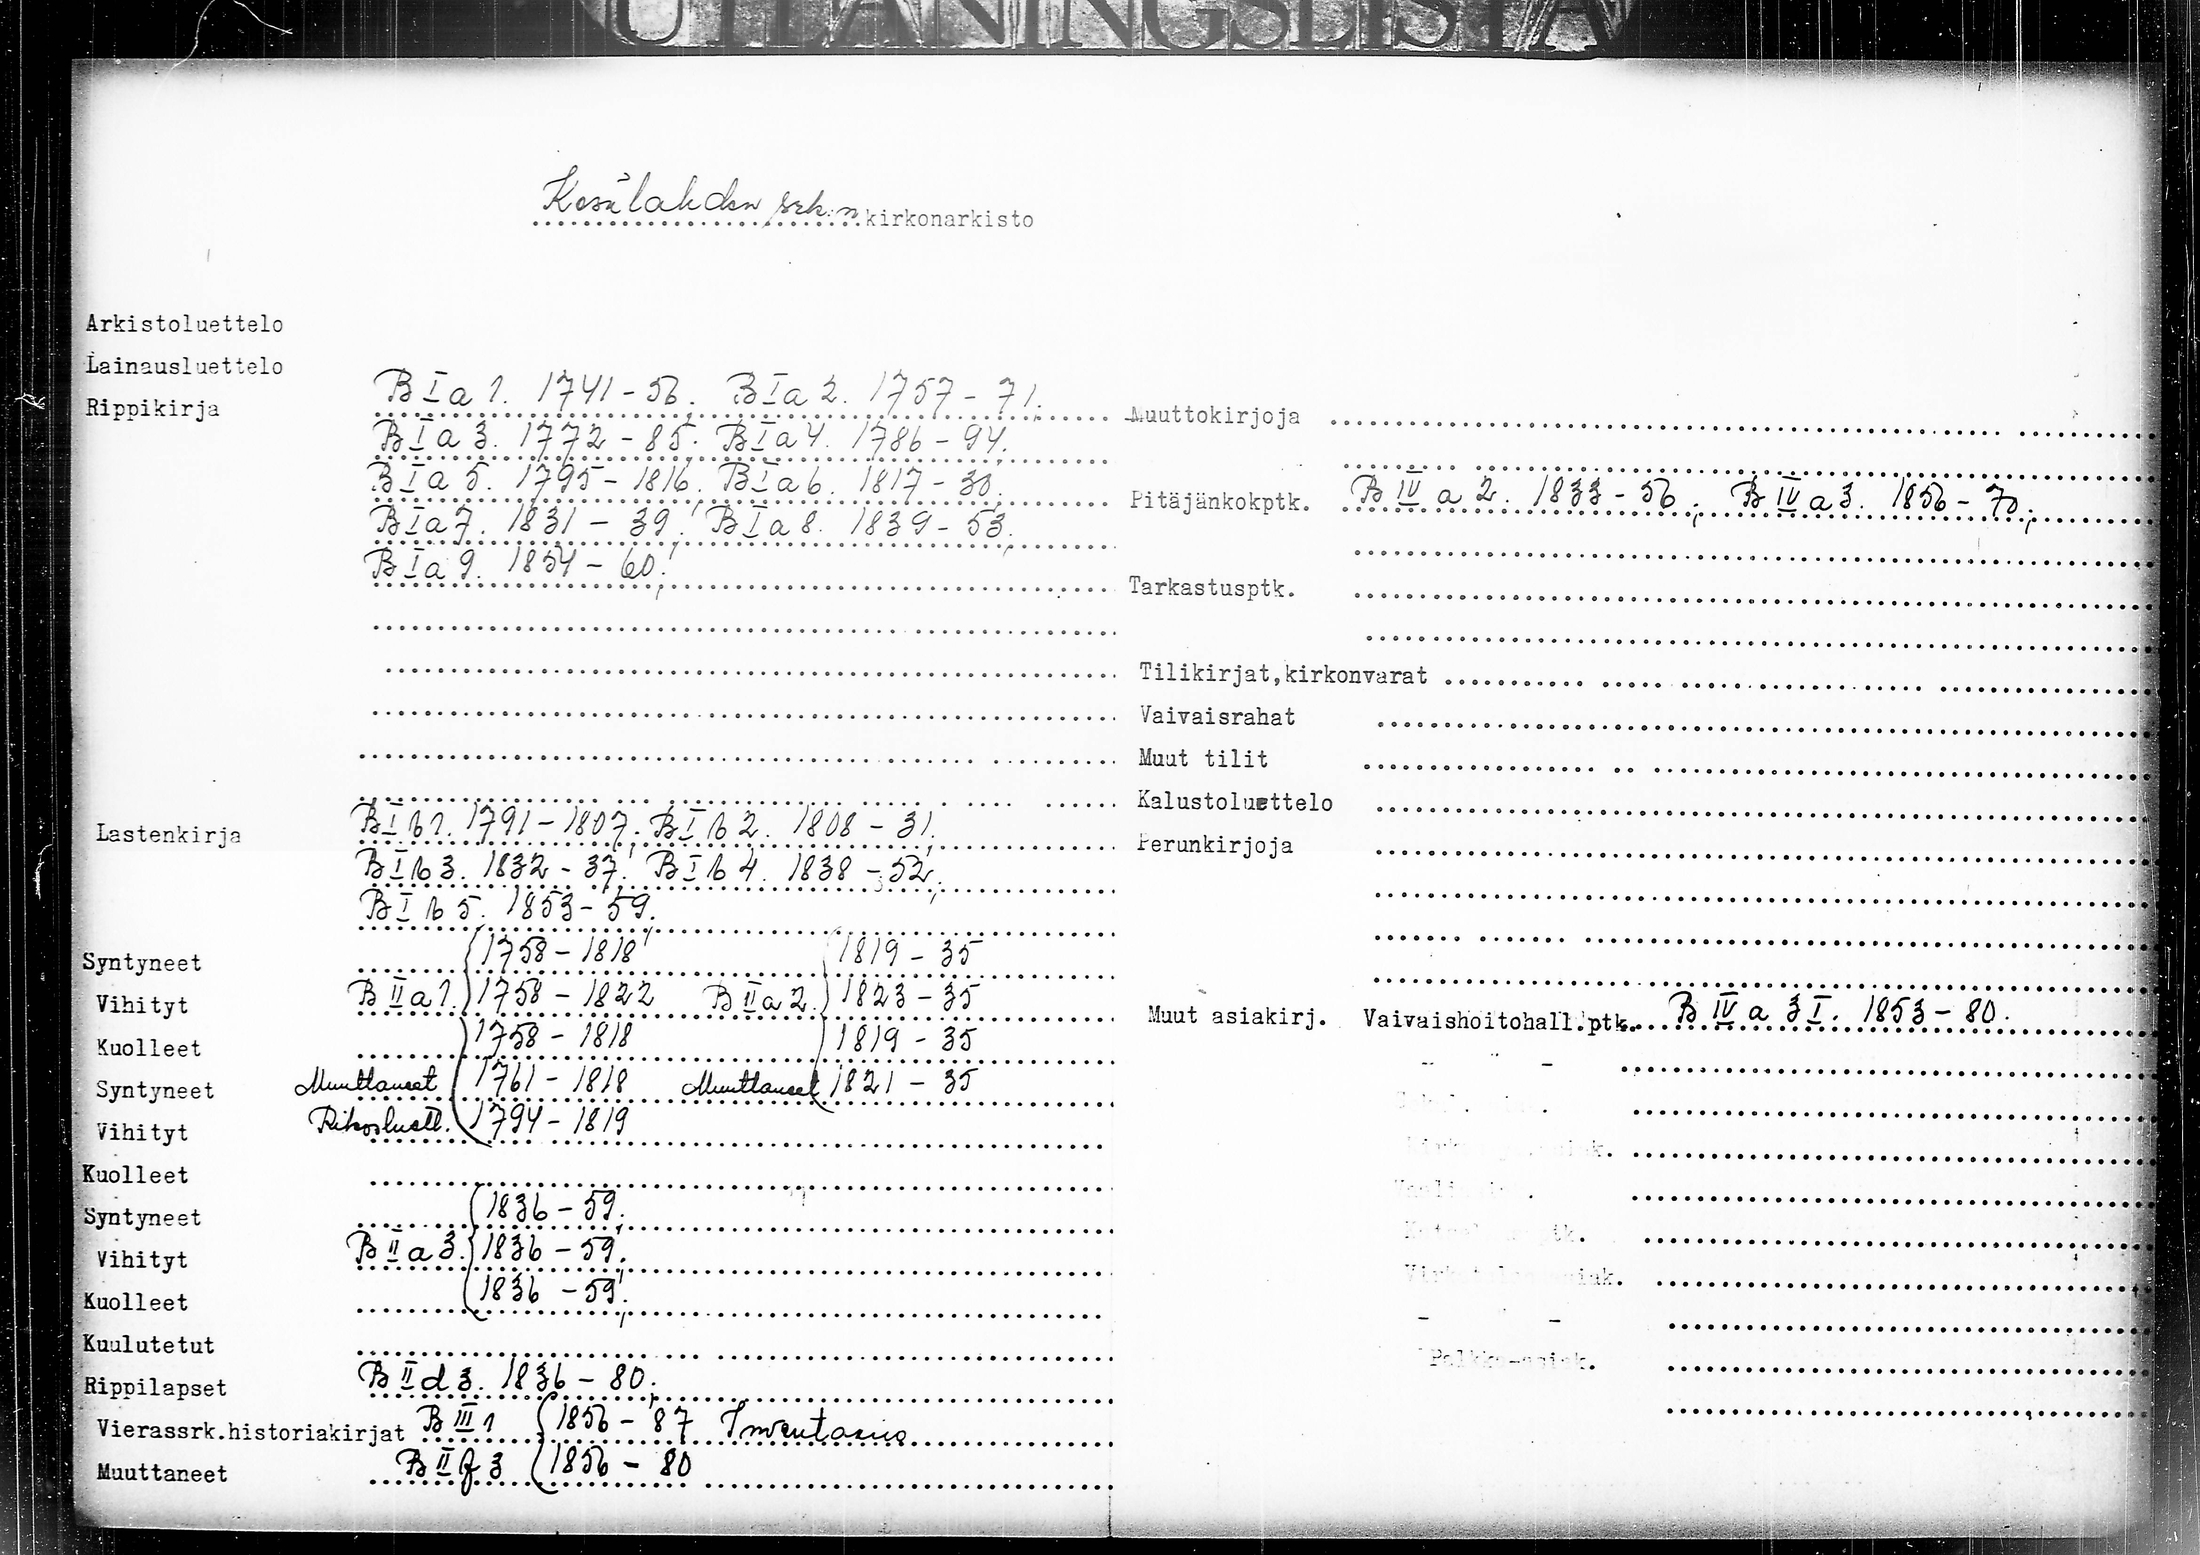 UTLÅNINGSLISTA
Kesälahden srk:n kirkonarkisto
Arkistoluettelo
Lainausluettelo
Rippikirja B I a 1. 1741-56; B I a 2. 1757-71;
B I a 3. 1772-85; B I a 4. 1786-94;
B I a 5. 1795-1816; B I a 6. 1817-30;
B I a 7. 1831-39; B I a 8. 1839-53;
B I a 9. 1854-60;
Lastenkirja B I b 1. 1791-1807; B I b 2. 1808-31;
B I b 3. 1832-37; B I b 4. 1838-52;
B I b 5. 1853-59;
Syntyneet 1758-1818 1819-35
Vihityt B II a 1. 1758-1822 B II a 2. 1823-35
Kuolleet 1758-1818 1819-35
Syntyneet Muuttaneet 1761-1818 Muuttaneet 1821-35
Vihityt Rikosluett. 1794-1819
Kuolleet
Syntyneet 1836-59;
Vihityt B II a 3. 1836-59;
Kuolleet 1836-59;
Kuulutetut
Rippilapset B II d 3. 1836-80;
Vierassrk.historiakirjat B III 1 1856-87 Inventario
Muuttaneet B II f 3 1856-80
Muuttokirjoja
Pitäjänkokptk. B IV a 2. 1833-56; B IV a 3. 1856-70;
Tarkastusptk.
Tilikirjat,kirkonvarat
Vaivaisrahat
Muut tilit
Kalustoluettelo
Perunkirjoja
Muut asiakirj. Vaivaishoitohall.ptk. B IV a 3 I. 1853-80.
- " -
- -